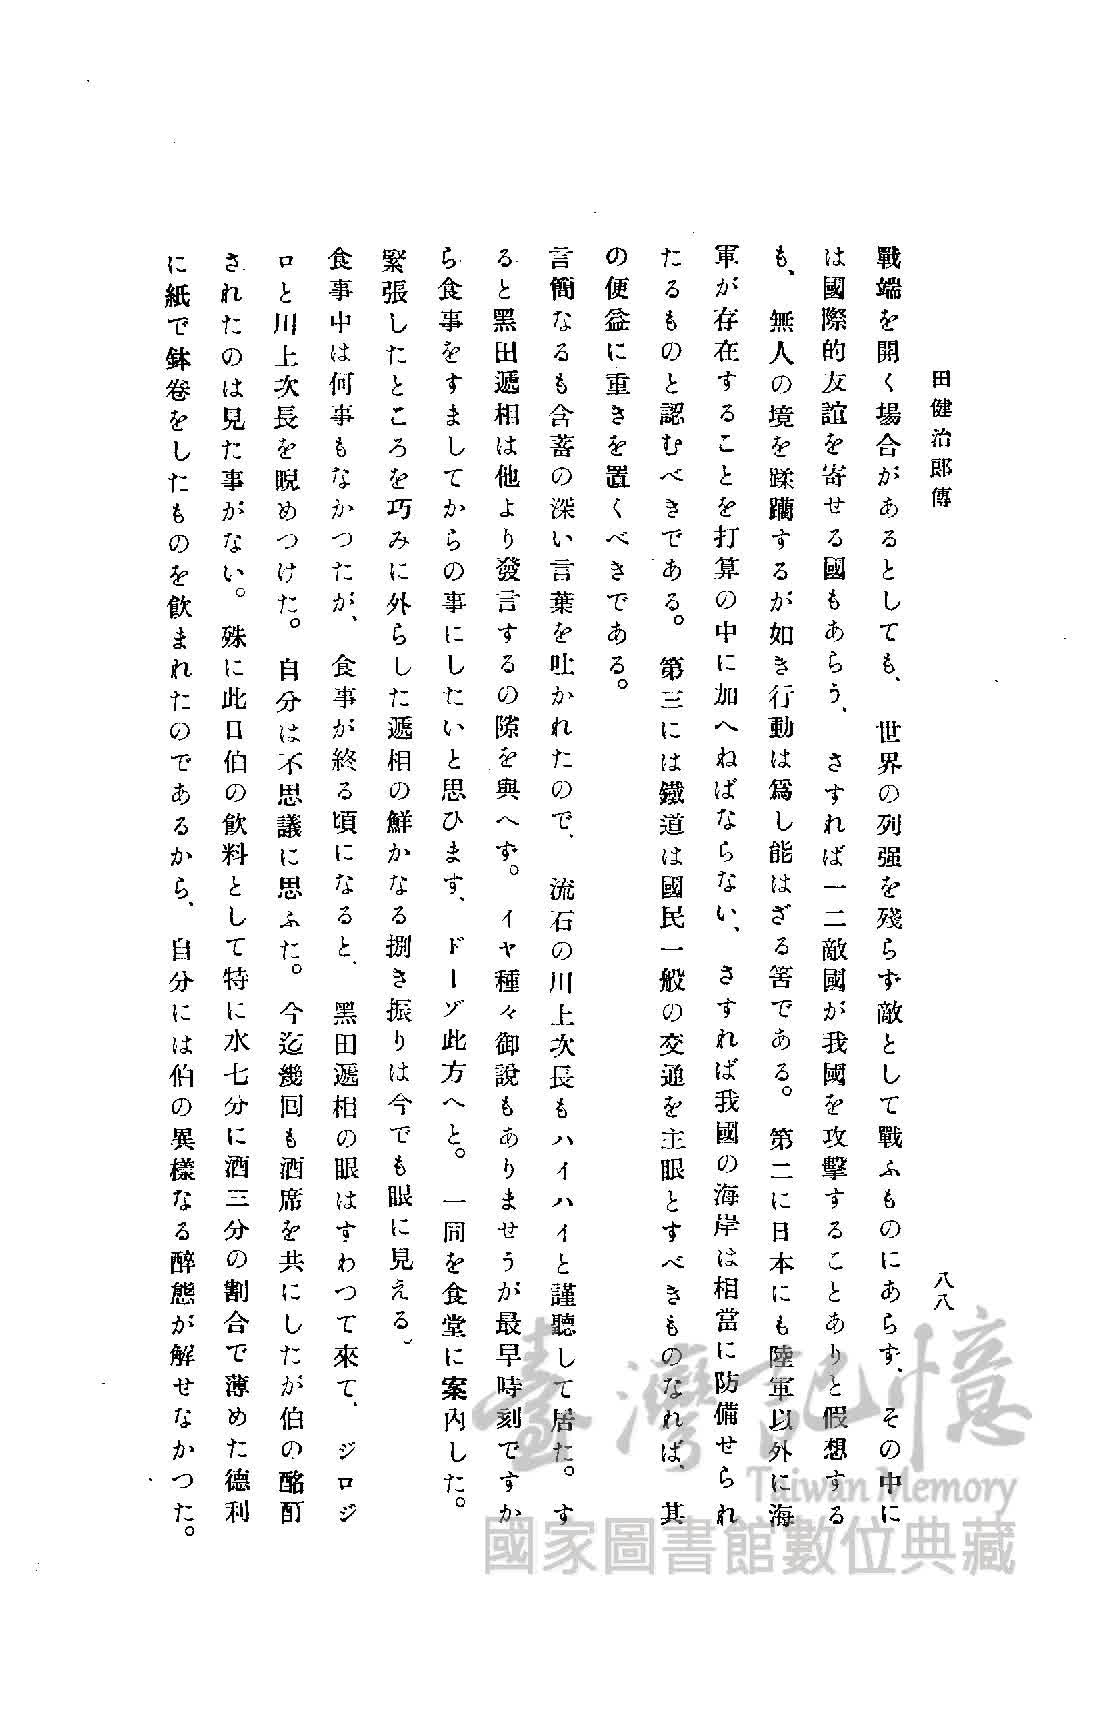 田健治郎傳
八八
戰端を開く場合があるとしても、世界の列强を殘らず敵として戰ふものにあらず、その中に
は國際的友誼を寄せる國もあらう、さすれば一二敵國が我國を攻擊することありと假想する
も、無人の境を蹂躪するが如き行動は爲し能はざる筈である。第二に日本にも陸軍以外に海
軍が存在することを打算の中に加へねばならない、さすれば我國の海岸は相當に防備せられ
たるものと認むべきである。第三には鐵道は國民一般の交通を主眼とすべきものなれば、其
の便益に重きを置くべきである。
言簡なるも含蓄の深い言葉を吐かれたので、流石の川上次長もハイハイと謹聽して居た。す
ると黑田遞相は他より發言するの隙を與へず。イヤ種々御說もありませうが最早時刻ですか
ら食事をすましてからの事にしたいと思ひます、ドーゾ此方へと。一同を食堂に案內した。
緊張したところを巧みに外らした遞相の鮮かなる捌き振りは今でも眼に見える。
食事中は何事もなかつたが、食事が終る頃になると、黑田遞相の眼はすわつて來て、ジロジ
ロと川上次長を睨めつけた。自分は不思議に思ふた。今迄幾回も酒席を共にしたが伯の酩酊
されたのは見た事がない。殊に此日伯の飮料として特に水七分に酒三分の割合で薄めた德利
に紙で鉢卷をしたものを飮まれたのであるから、自分には伯の異樣なる醉態が解せなかつた。
臺灣記憶
Taiwan Memory
國家圖書館數位典藏